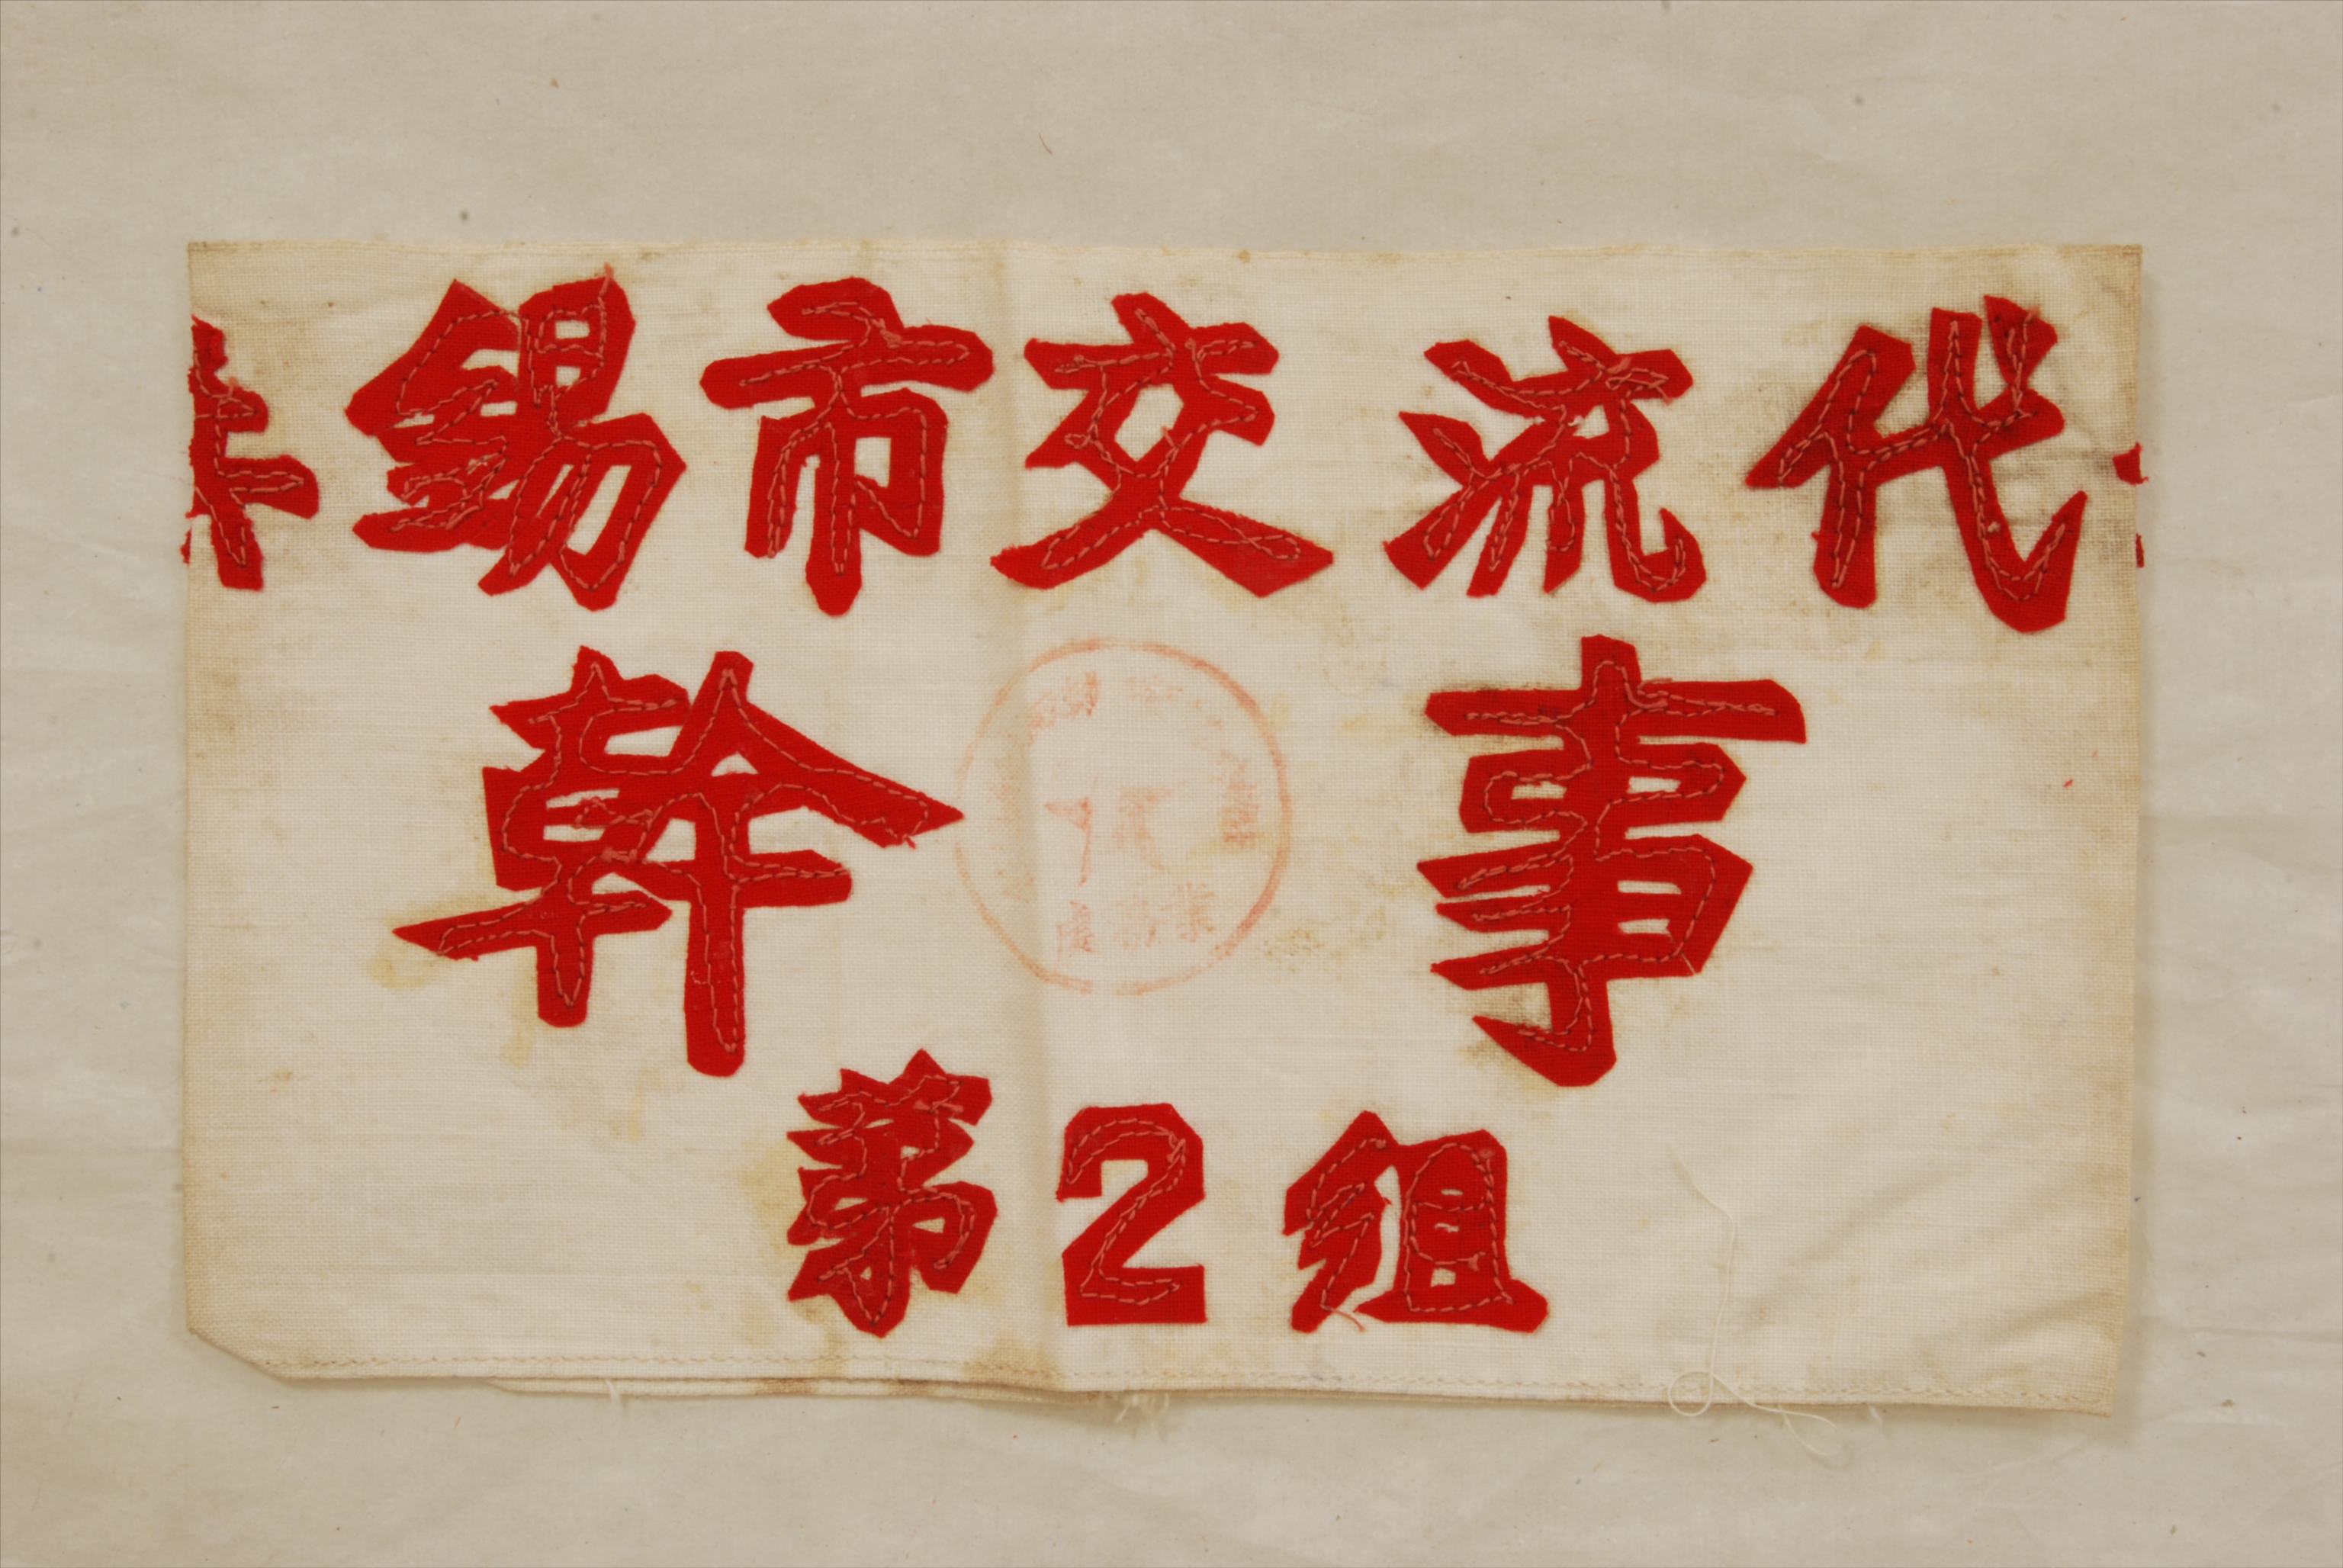 錫市交流代
幹事
第2組